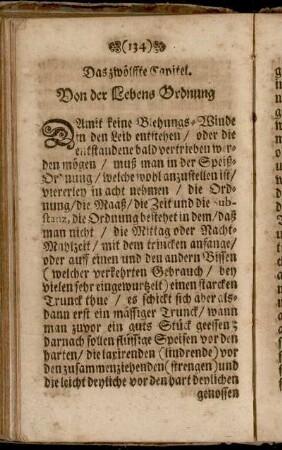 (134)
Das zwölffte Capitel.
Von der Lebens Ordnung
DAmit keine Blehungs-Winde
in den Leib entstehen / oder die
entstandene bald vertrieben wer-
den mögen / muß man in der Speiß-
Ordnung / welche wohl anzustellen ist /
viererley in acht nehmen / die Ord-
nung / die Maaß / die Zeit und die Sub-
stanz, die Ordnung bestehet in dem / daß
man nicht / die Mittag oder Nacht-
Mahlzeit / mit dem trincken anfange /
oder auff einen und den andern Bissen
( welcher verkehrten Gebrauch / bey
vielen sehr eingewurtzelt ) einen starcken
Trunck thue / es schickt sich aber als-
dann erst ein mässiger Trunck / wann
man zuvor ein guts Stück geessen ;
darnach sollen flüssige Speisen vor den
harten / die laxirenden ( lindrende ) vor
den zusammenziehenden ( strengen ) und
die leicht deyliche vor den hart deylichen
genossen